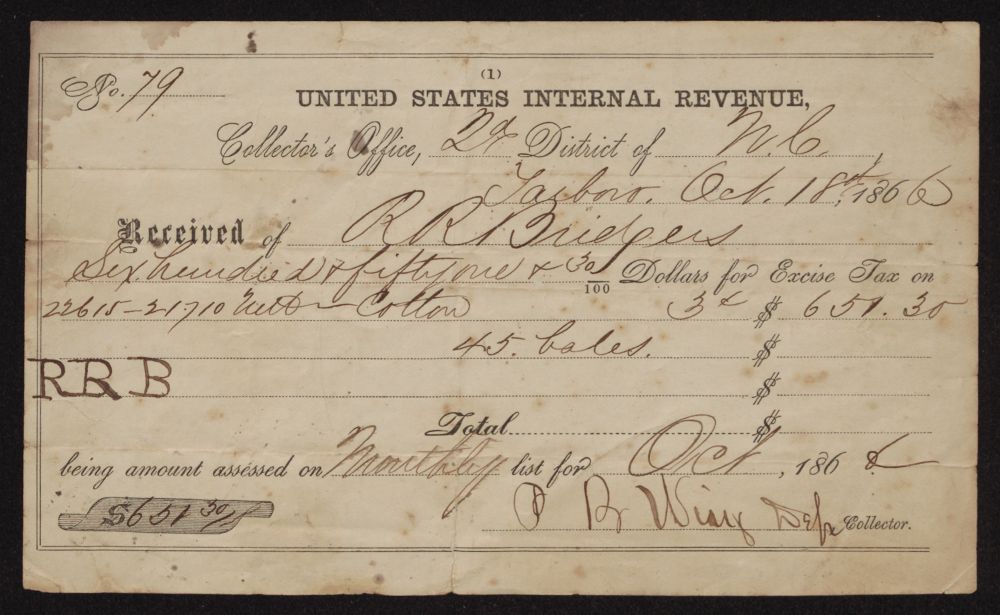 No. 79
(1)
UNITED STATES INTERNAL REVENUE,
Collector's Office, 2d District of N.C.,
Tarboro. Oct. 18th, 1866
Received of R R Bridgers
Six hundred & fifty one & 30/100 Dollars for Excise Tax on
22615 – 21.710 Nett – Cotton 3¢ $ 651.30
45. bales. $
RRB $
Total $
being amount assessed on Monthly list for Oct, 186
$651 30/
P B Dep Collector.